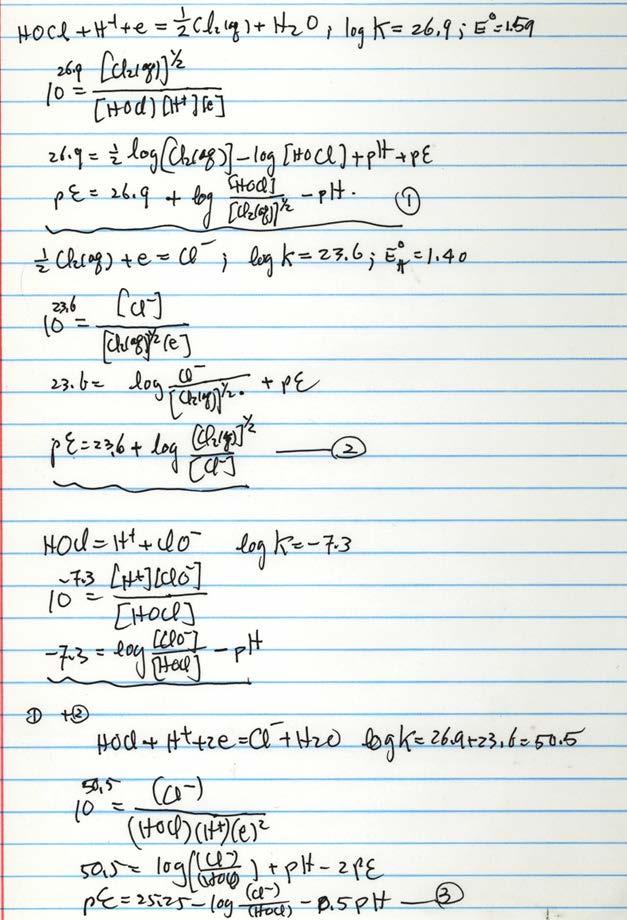 HOCl + H⁺ + e = ½Cl₂(aq) + H₂O ; log K = 26.9 ; E° = 1.59
10^26.9 = [Cl₂(aq)]^½ / [HOCl][H⁺][e]
26.9 = ½ log[Cl₂(aq)] - log[HOCl] + pH + pE
pE = 26.9 + log [HOCl] / [Cl₂(aq)]^½ - pH. ①
½Cl₂(aq) + e = Cl⁻ ; log K = 23.6 ; E°H = 1.40
10^23.6 = [Cl⁻] / [Cl₂(aq)]^½ [e]
23.6 = log Cl⁻ / [Cl₂(aq)]^½ . + pE
pE = 23.6 + log [Cl₂(aq)]^½ / [Cl⁻] — ②
HOCl = H⁺ + ClO⁻ log K = -7.3
10^-7.3 = [H⁺][ClO⁻] / [HOCl]
-7.3 = log [ClO⁻] / [HOCl] - pH
① + ②
HOCl + H⁺ + 2e = Cl⁻ + H₂O log K = 26.9 + 23.6 = 50.5
10^50.5 = (Cl⁻) / (HOCl)(H⁺)(e)²
50.5 = log((Cl⁻) / (HOCl)) + pH - 2pE
pE = 25.25 - log (Cl⁻) / (HOCl) - 0.5 pH — ③